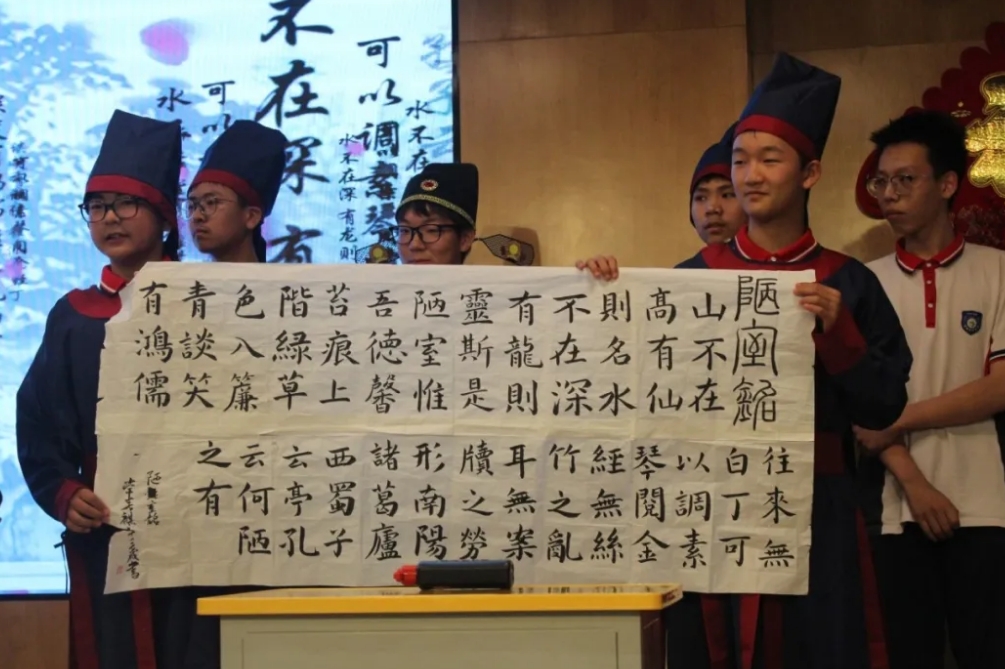 水不在
可以调素琴
水不在深有龙则
不在深有
可以
陋室銘
山不在
髙有仙
則名水
不在深
有龍則
靈斯是
陋室惟
吾德馨
苔痕上
階緑草
色入簾
青談笑
有鴻儒
往來無
白丁可
以調素
琴閱金
經無絲
竹之亂
耳無案
牘之勞
形南陽
諸葛廬
西蜀子
云亭孔
云何陋
之有